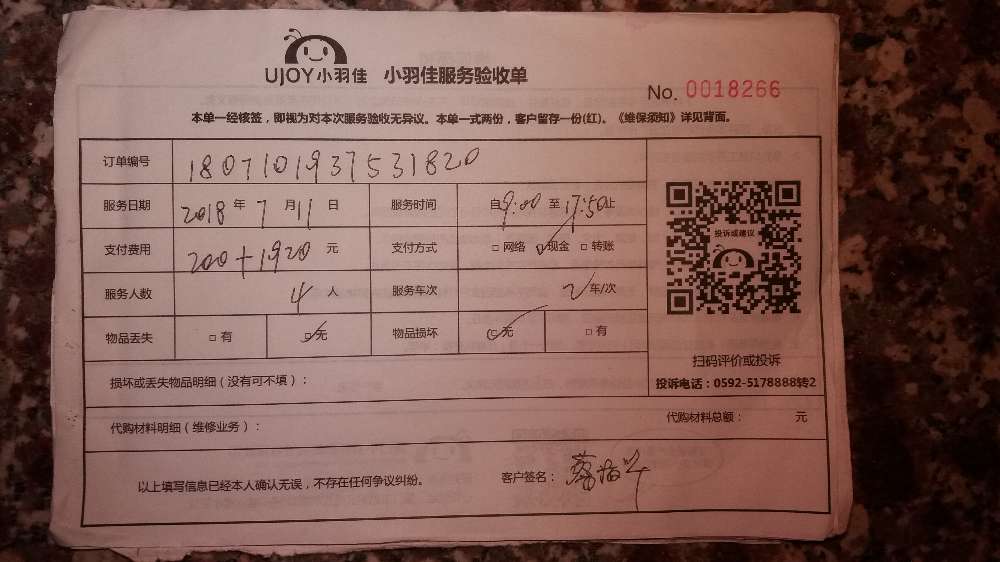 UJOY小羽佳 小羽佳服务验收单
No. 0018266
本单一经核签，即视为对本次服务验收无异议。本单一式两份，客户留存一份(红)。《维保须知》详见背面。
订单编号 1807101937531820
服务日期 2018 年 7 月 11 日 服务时间 自 9:00 至 17:50 止
支付费用 200+1920 元 支付方式 □ 网络 ☑ 现金 □ 转账
服务人数 4 人 服务车次 2 车/次
物品丢失 □ 有 ☑ 无 物品损坏 ☑ 无 □ 有
投诉或建议
扫码评价或投诉
投诉电话：0592-5178888转2
损坏或丢失物品明细（没有可不填）：
代购材料明细（维修业务）： 代购材料总额： 元
以上填写信息已经本人确认无误，不存在任何争议纠纷。 客户签名：